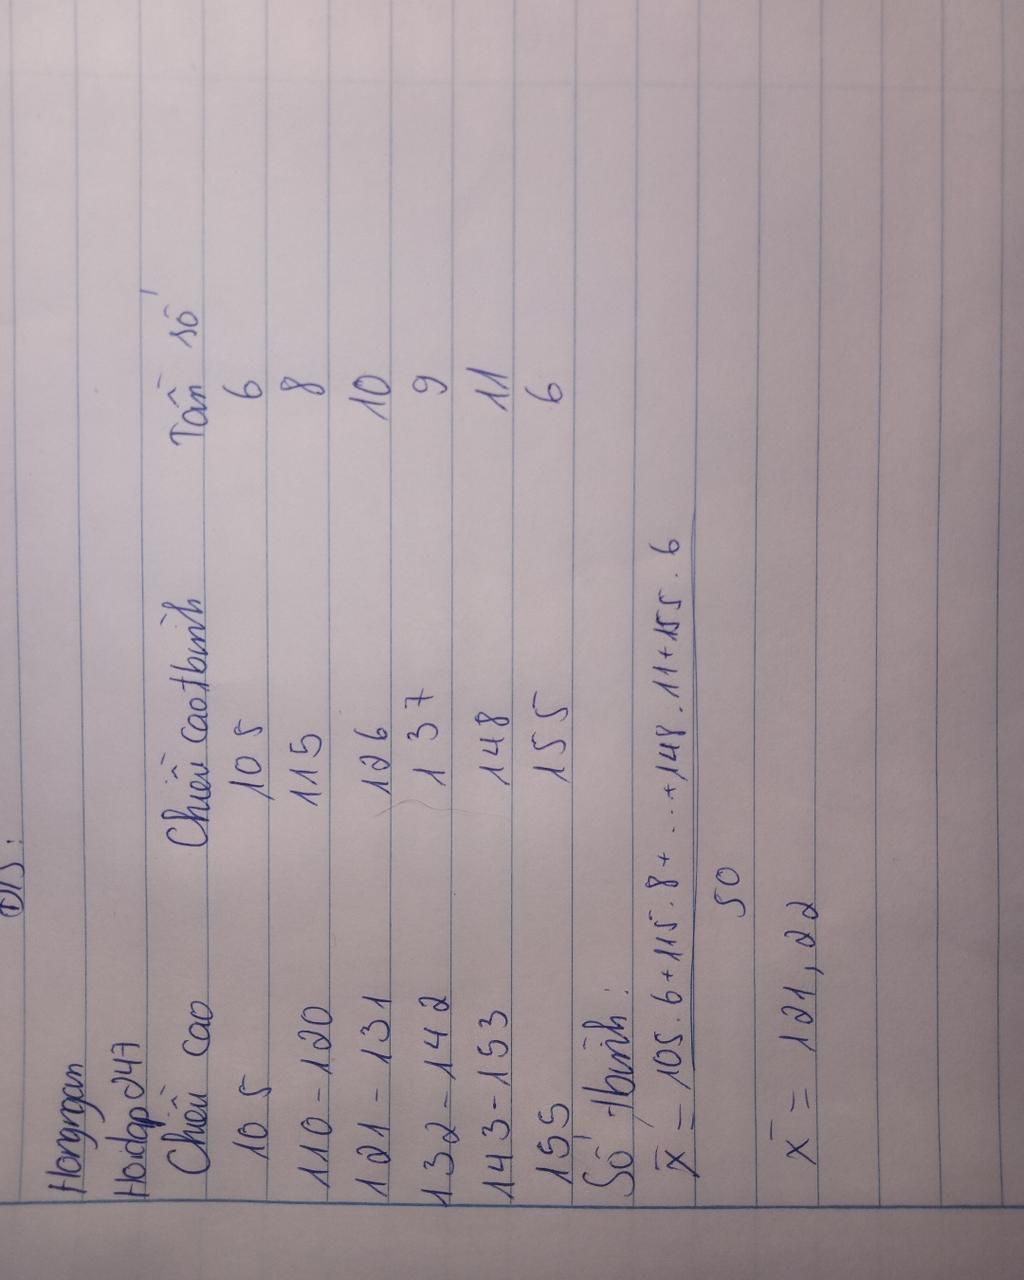 Đ/S:
Hongngan
Hoidap247
Chiều cao Chiều cao tbình Tần số
105 105 6
110-120 115 8
121-131 126 10
132-142 137 9
143-153 148 11
155 155 6
Số tbình:
X̄ = 105.6+115.8+...+148.11+155.6
50
X̄ = 121,22